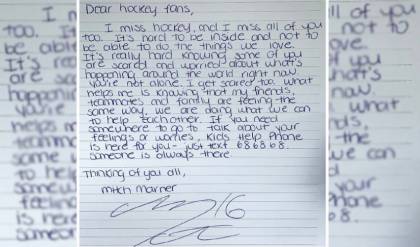 Dear hockey fans,
I miss hockey, and I miss all of you
too. It's hard to be inside and not to
be able to do the things we love.
It's really hard knowing some of you
are scared and worried about what's
happening around the world right now
you're not alone. I get scared too. What
helps me is knowing that my friends,
teammates and family are feeling the
same way, we are doing what we can
to help eachother. If you need
somewhere to go to talk about your
feelings or worries, Kids Help Phone
is here for you- just text 686868.
Someone is always there.
Thinking of you all,
Mitch Marner
16